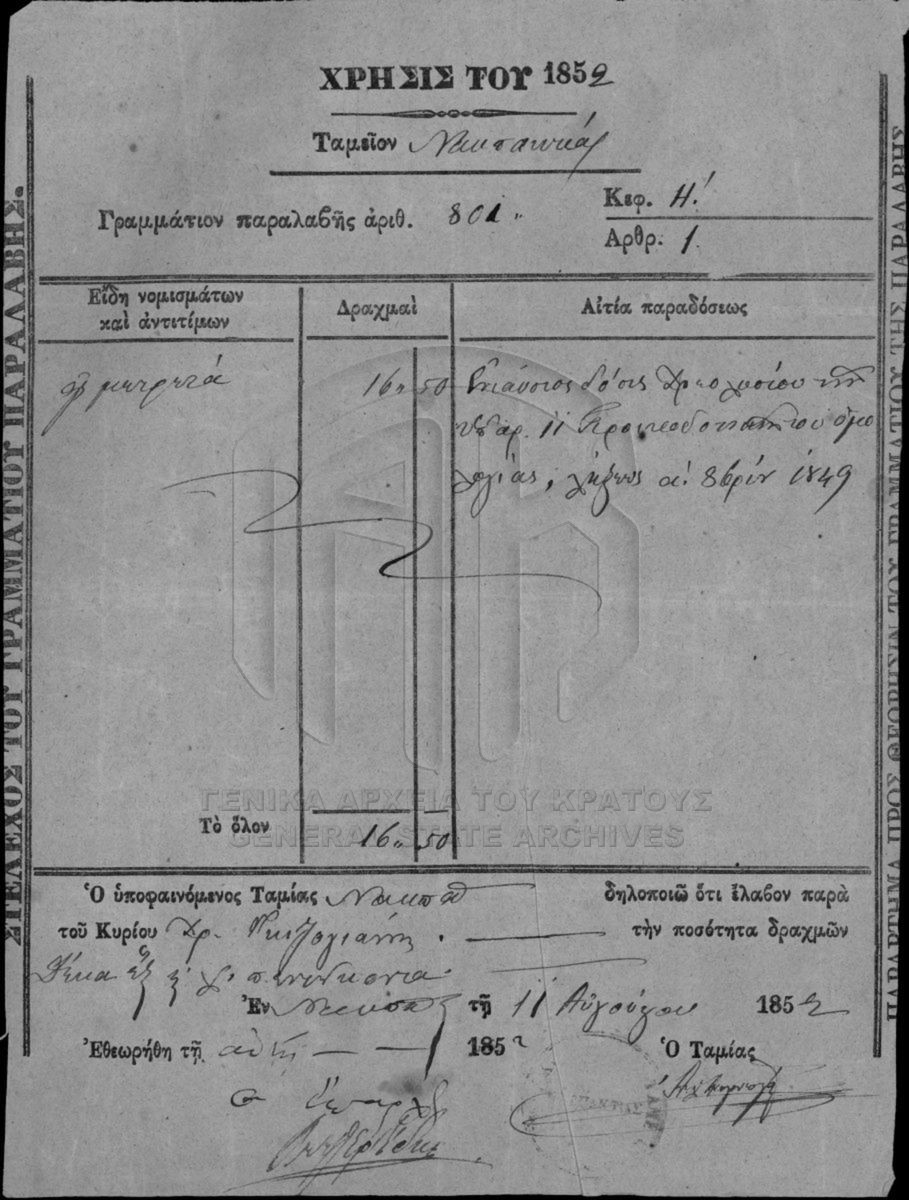 ΧΡΗΣΙΣ ΤΟΥ 1852
Ταμεῖον Ναυπακτίας
Γραμμάτιον παραλαβῆς ἀριθ. 801
Κεφ. Η!
Αρθρ. 1.
Εἴδη νομισμάτων καὶ ἀντιτίμων
Δραχμαὶ
Αἰτία παραδόσεως
μετρητά
16 50
Ἐτιαύσιος δόσις Χρεολυσίου τῆς
ὑπ ἀρ. 11 Προικοδοτικῆς του ὁμο
λογίας, λήξεως α! 8βρίου 1849
Τὸ ὅλον
16 50
ΓΕΝΙΚΑ ΑΡΧΕΙΑ ΤΟΥ ΚΡΑΤΟΥΣ
GENERAL STATE ARCHIVES
Ὁ ὑποφαινόμενος Ταμίας Ναυπα δηλοποιῶ ὅτι ἔλαβον παρὰ
τοῦ Κυρίου Χρ. τὴν ποσότητα δραχμῶν
δέκα ἓξ πενήκοντα
Ἐν Ναυπα τῇ 11 Αὐγούστου 1852
Ἐθεωρήθη τῇ αὐτῇ 1852 Ὁ Ταμίας
Ὁ Ἔπαρχος
ΣΤΕΛΕΧΟΣ ΤΟΥ ΓΡΑΜΜΑΤΙΟΥ ΠΑΡΑΛΑΒΗΣ.
ΠΑΡΑΡΤΗΜΑ ΠΡΟΣ ΘΕΩΡΗΣΙΝ ΤΟΥ ΓΡΑΜΜΑΤΙΟΥ ΤΗΣ ΠΑΡΑΛΑΒΗΣ